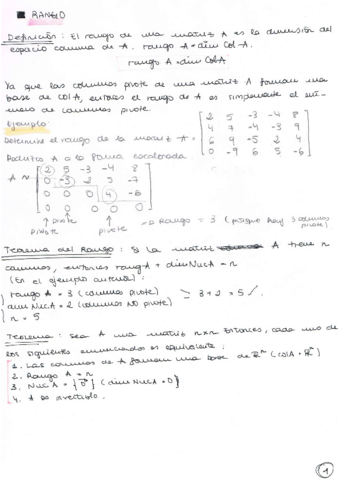 ■ RANGO
Definición: El rango de una matriz A es la dimensión del
espacio columna de A. rango A = dim Col A.
rango A = dim Col A
Ya que las columnas pivote de una matriz A forman una
base de Col A, entonces el rango de A es simplemente el nú-
mero de columnas pivote.
Ejemplo:
Determine el rango de la matriz A = [2 5 -3 -4 8
4 7 -4 -3 9
6 9 -5 2 4
0 -9 6 5 -6]
Reducimos A a la forma escalonada.
A ~ [2 5 -3 -4 8
0 -3 2 5 -7
0 0 0 4 -6
0 0 0 0 0]
pivote pivote pivote
→ Rango = 3 (porque hay 3 columnas pivote)
Teorema del Rango: Si la matriz A tiene n
columnas, entonces rang A + dim Nuc A = n
(En el ejemplo anterior):
rango A = 3 (columnas pivote)
dim Nuc A = 2 (columnas NO pivote)
n = 5
= 3 + 2 = 5 ✓.
Teorema: Sea A una matriz n x n entonces, cada uno de
los siguientes enunciados es equivalente:
1. Las columnas de A forman una base de ℝⁿ (col A = ℝⁿ)
2. Rango A = n
3. Nuc A = {0⃗} (dim Nuc A = 0)
4. A es invertible.
1